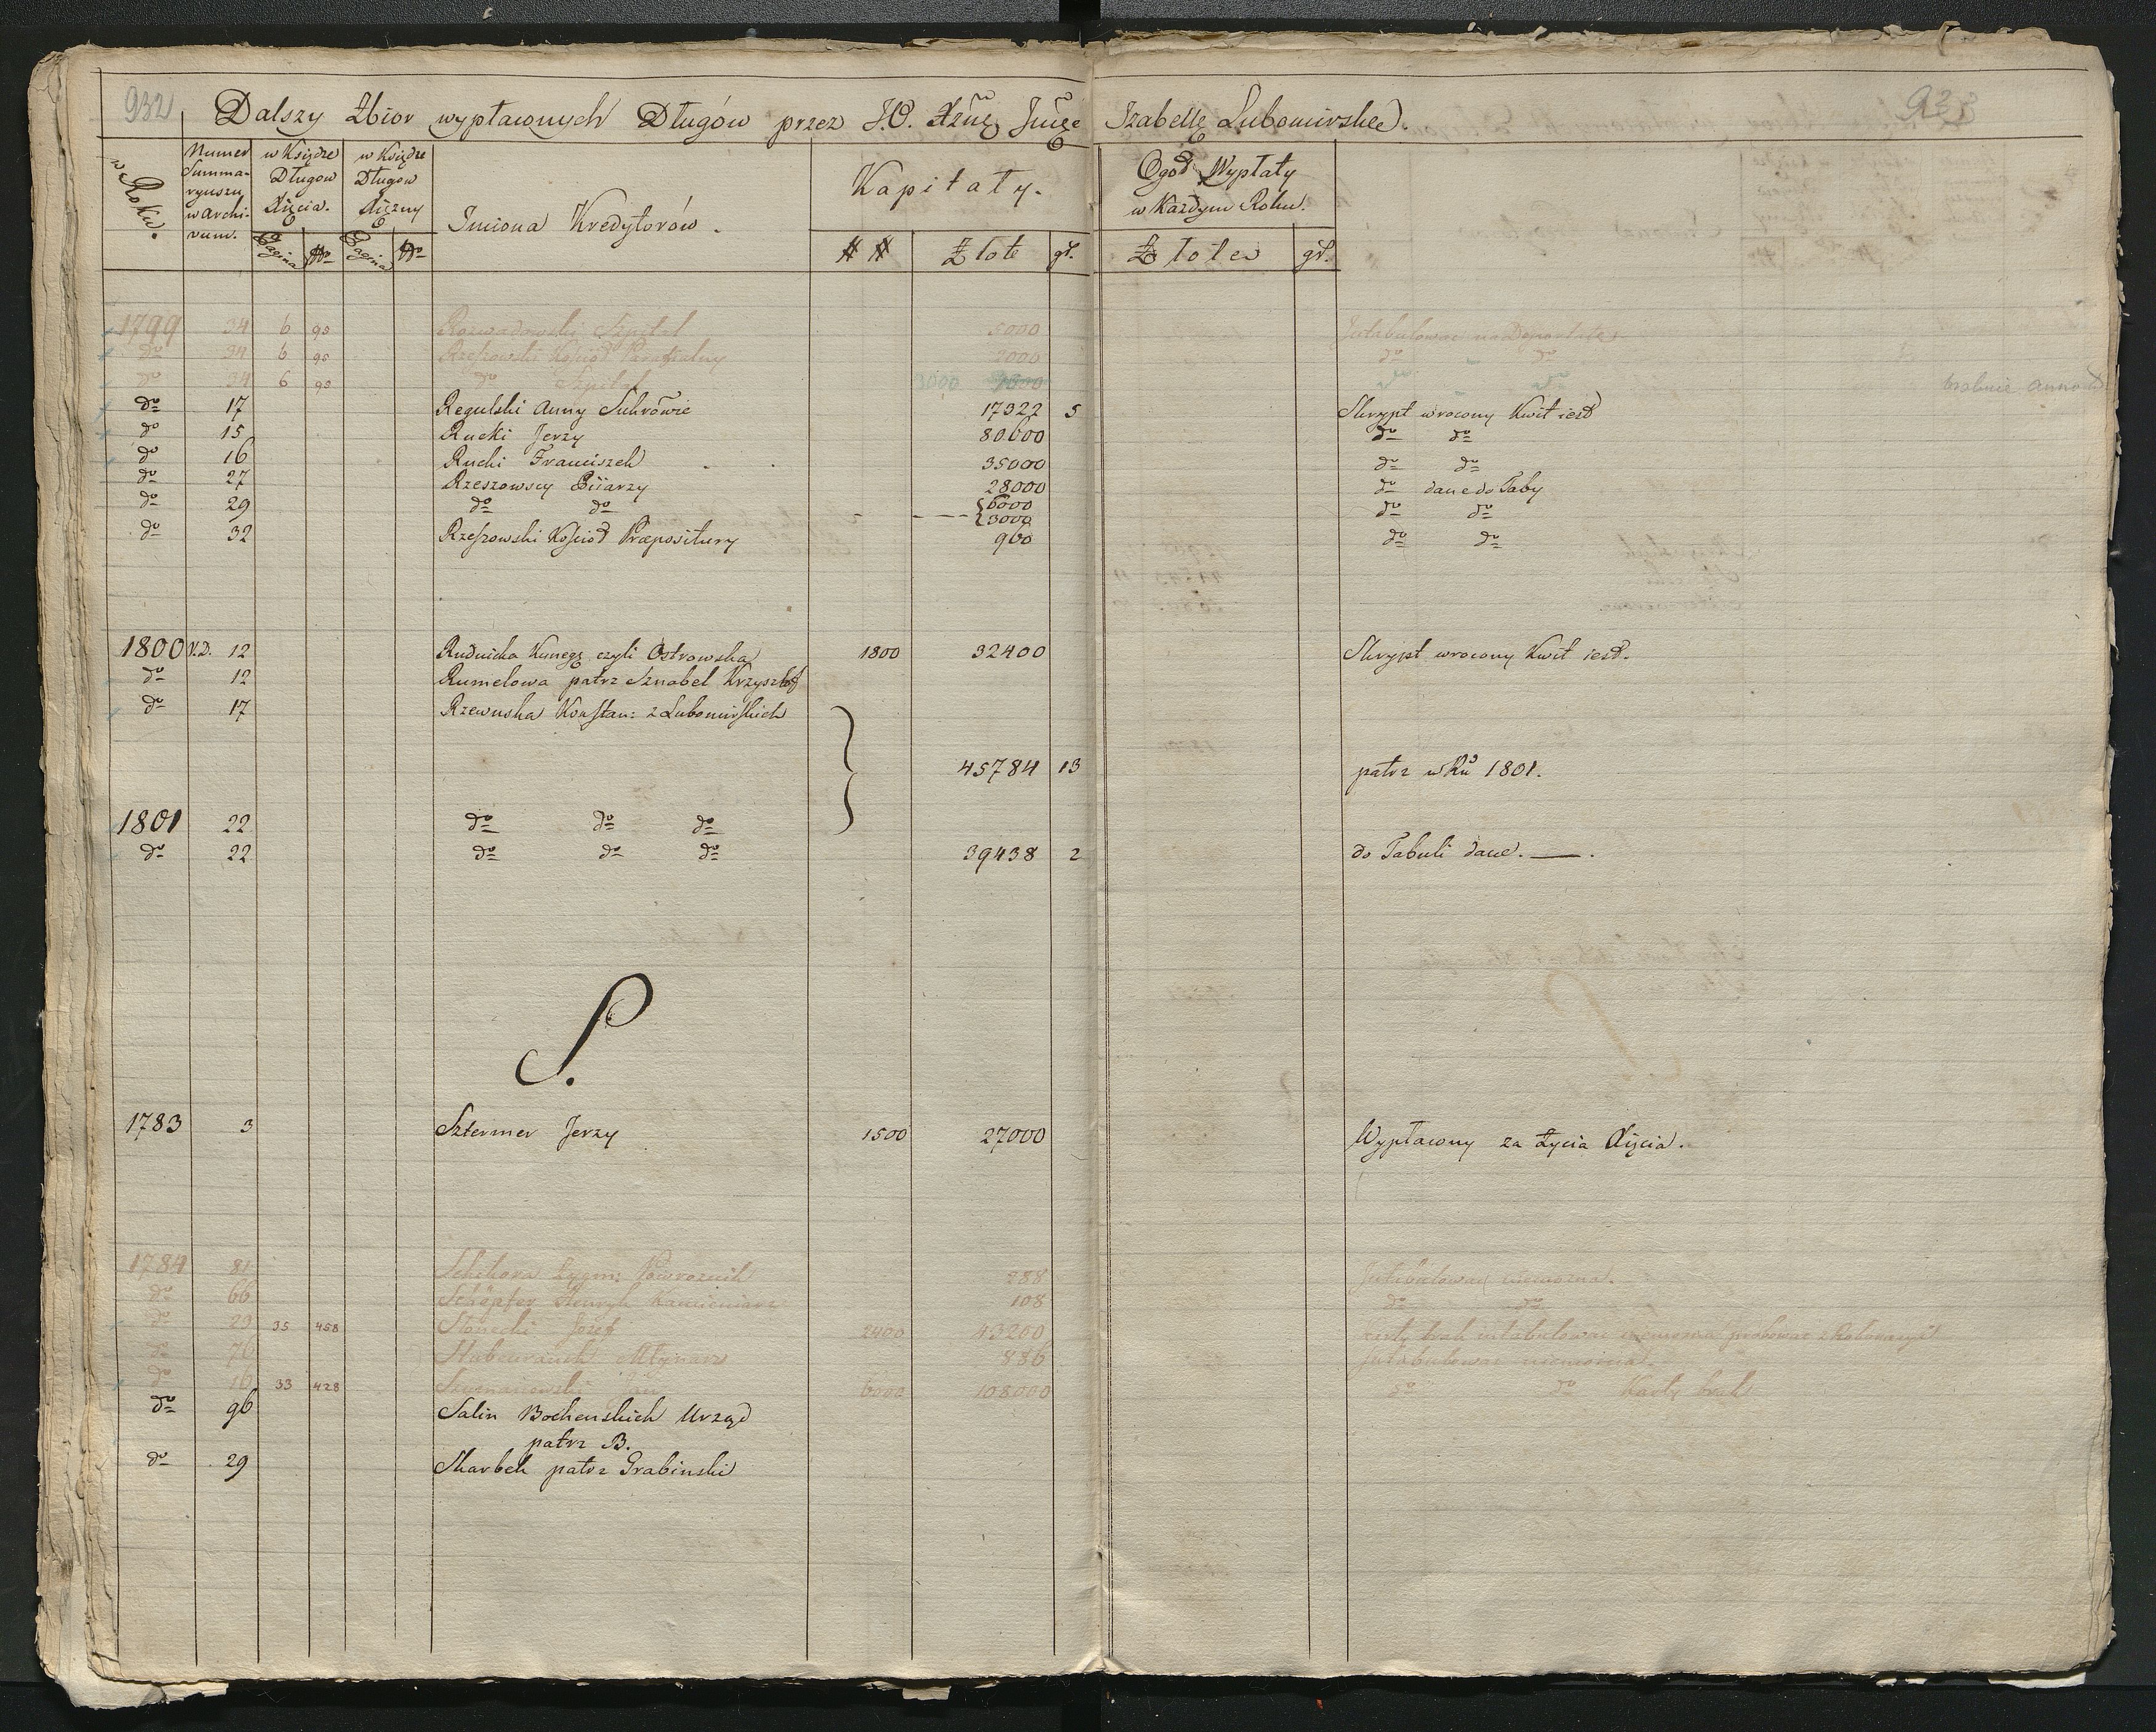 932
933
Dalszy Zbior wypłaconych Długów przez J.O. Xznę Jmcę Izabellę Lubomirskę.
w Roku.
Numer Summaryuszu w Archivum.
w Księdze Długow Xięcia.
w Księdze Długow Xiężny
Pagina Nro Pagina Nro
Imiona Kredytorów.
Kapitały.
## Złote gr.
Ogół Wypłaty w Każdym Roku.
Złote gr.
1799 34 6 90 Rozwadowski Szpital 5000 Intabulowac
do 34 6 90 Rzeszowski Kościoł Parafialny 2000 do do
do 34 6 90 do Szpital 3000 do do
do 17 Regulski Anny 17322 5 Skrypt wrocony Kwit iest
do 15 Rucki Jerzy 80600 do do
do 16 Rucki Franciszek 35000 do do
do 27 Rzeszowscy Piiarzy 28000 do dane do Taby
do 29 do do 6000 3000 do do
do 32 Rzeszowski Kościoł Præpositury 960 do do
1800 V.D. 12 Rudnicka Kuneg: czyli Ostrowska 1800 32400 Skrypt wrocony Kwit iest.
do 12 Rumelowa patrz Sznabel Krzysztof
do 17 Rzewuska Konstan: z Lubomirskich
45784 13 patrz w Ru 1801.
1801 22 do do do
do 22 do do do 39438 2 do Tabuli dane.
S.
1783 3 Sztermer Jerzy 1500 27000 Wypłacony za Życia Xięcia.
1784 81 Zygm: Powroznik 288 Intabulowac niemozna.
do 66 Schöpfer Henryk Kamieniarz 108 do do
do 29 35 458 Słonecki Jozef 2400 43200
do 76 Młynarz 886 Intabulowac niemozna.
do 16 33 428 Szymanowski Jan 6000 108000 do do Karty brak
do 96 Salin Bochenskich Urząd
patrz B.
do 29 Skarbek patrz Grabinski